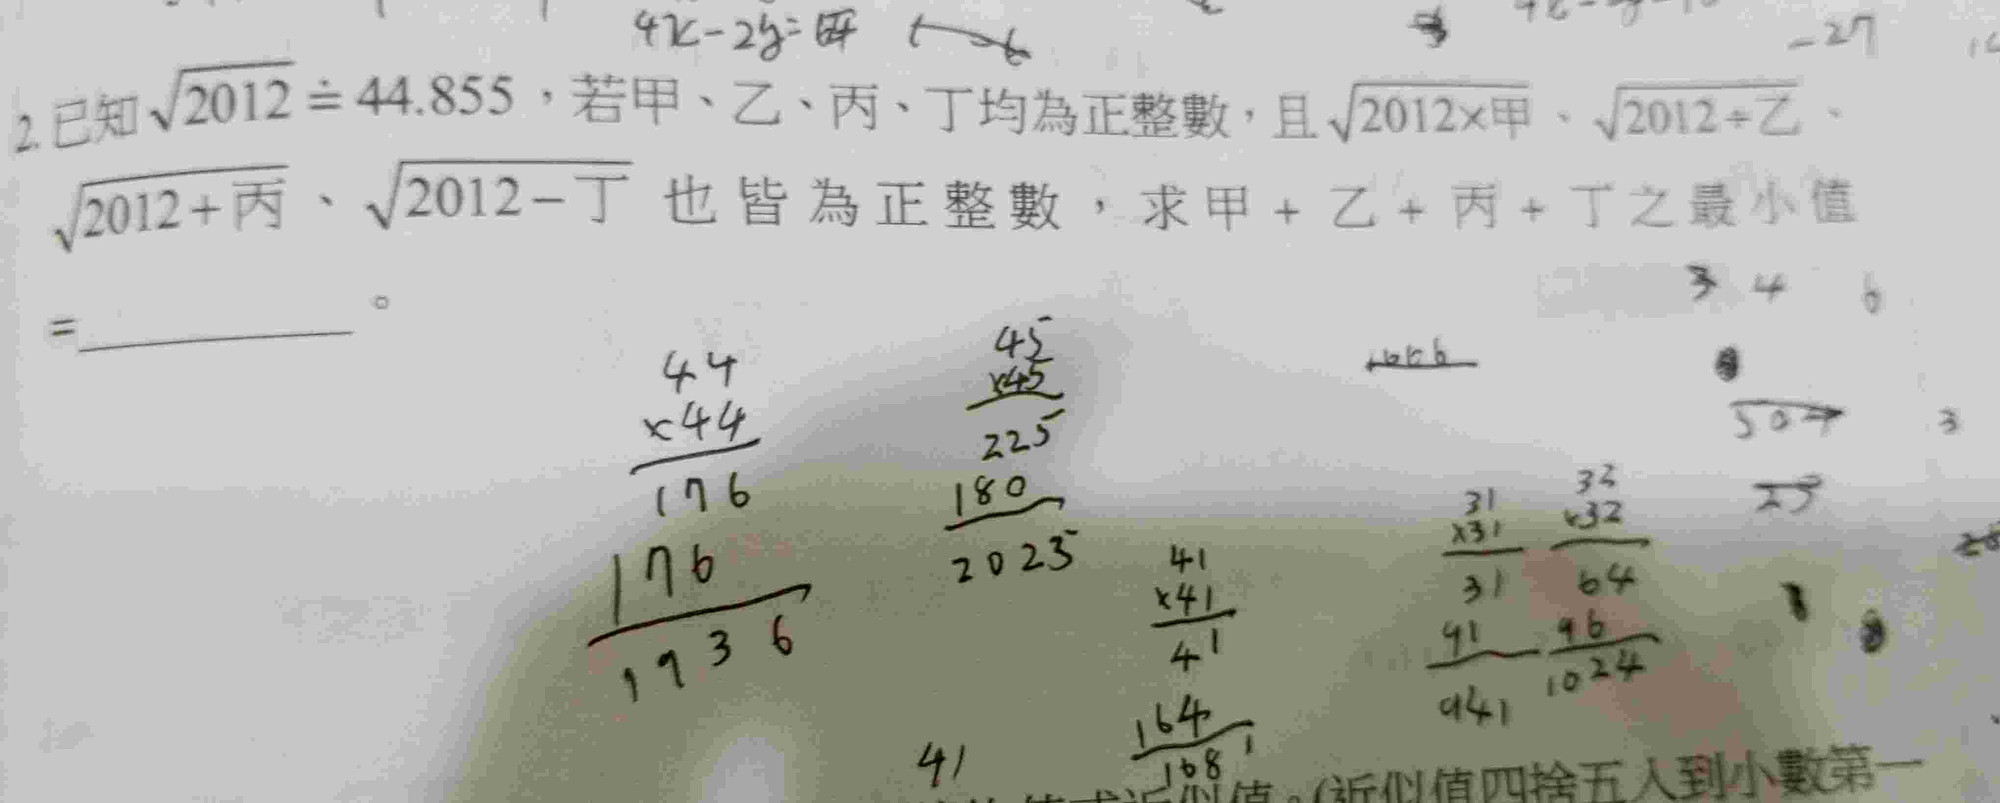 4x-2y=
-27
2. 已知√2012≐44.855，若甲、乙、丙、丁均為正整數，且√2012×甲、√2012÷乙、
√2012+丙、√2012-丁也皆為正整數，求甲+乙+丙+丁之最小值
=＿＿＿＿＿。
3 4 6
44
×44
176
176
1936
45
×45
225
180
2023
41
×41
41
164
1681
31
×31
31
91
941
32
×32
64
96
1024
507
3
25
41
(近似值四捨五入到小數第一